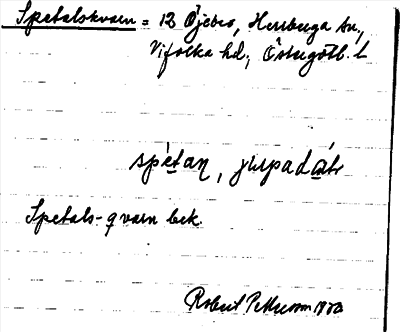 Spetalskvarn = 12 Öjebro, Herrberga sn.,
Vifolka hd., Östergötl. l.
spetan,
Spetals-qvarn bek.
Robert Pettersson